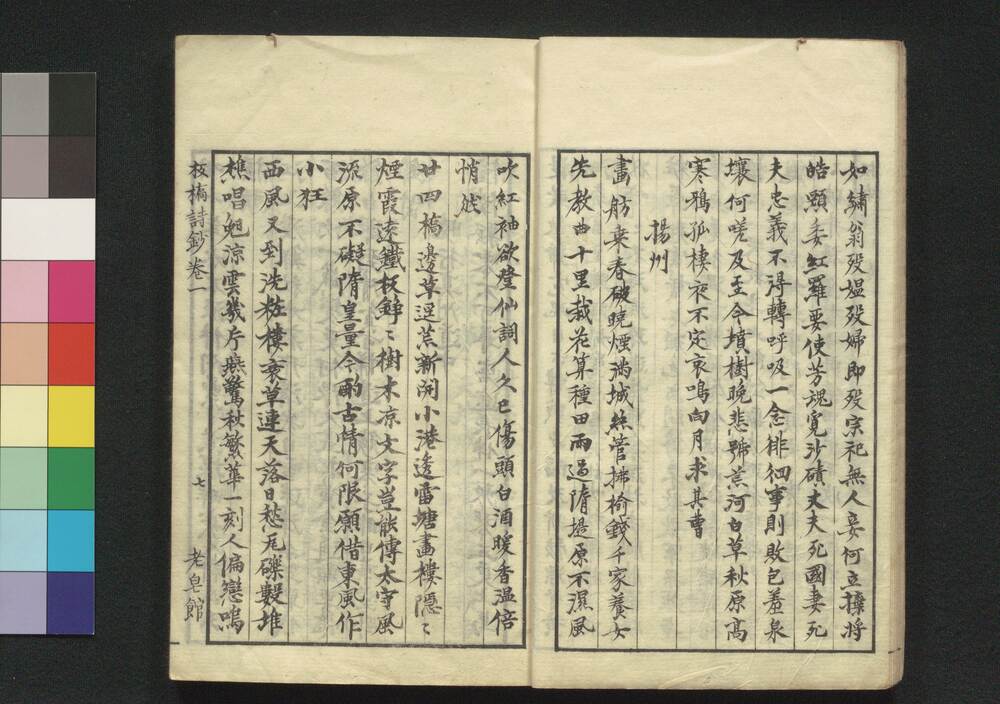 如繡翁歿媼歿婦即歿宗祀無人妾何立擡將
皓顆委紅羅要使芳魂覓沙磧丈夫死國妻死
夫忠義不得轉呼吸一念徘徊事則敗包羞泉
壤何嗟及至今墳樹晚悲號荒河白草秋原高
寒鴉孤棲夜不定哀鳴向月求其曹
揚州
畫舫乗春破曉煙滿城絲管拂榆錢千家養女
先教曲十里栽花算種田雨過隋堤原不濕風
吹紅袖欲登仙詞人久已傷頭白酒暖香温倍
悄然
廿四橋邊草逕荒新開小港透雷塘畫樓隱〻
煙霞遠鐵板錚〻樹木凉文字豈能傳太守風
流原不礙隋皇量今酌古情何限願借東風作
小狂
西風又到洗粧樓衰草連天落日愁瓦礫數堆
樵唱晚涼雲幾片燕驚秋繁華一刻人偏戀嗚
板橋詩鈔卷一
七
老皂館